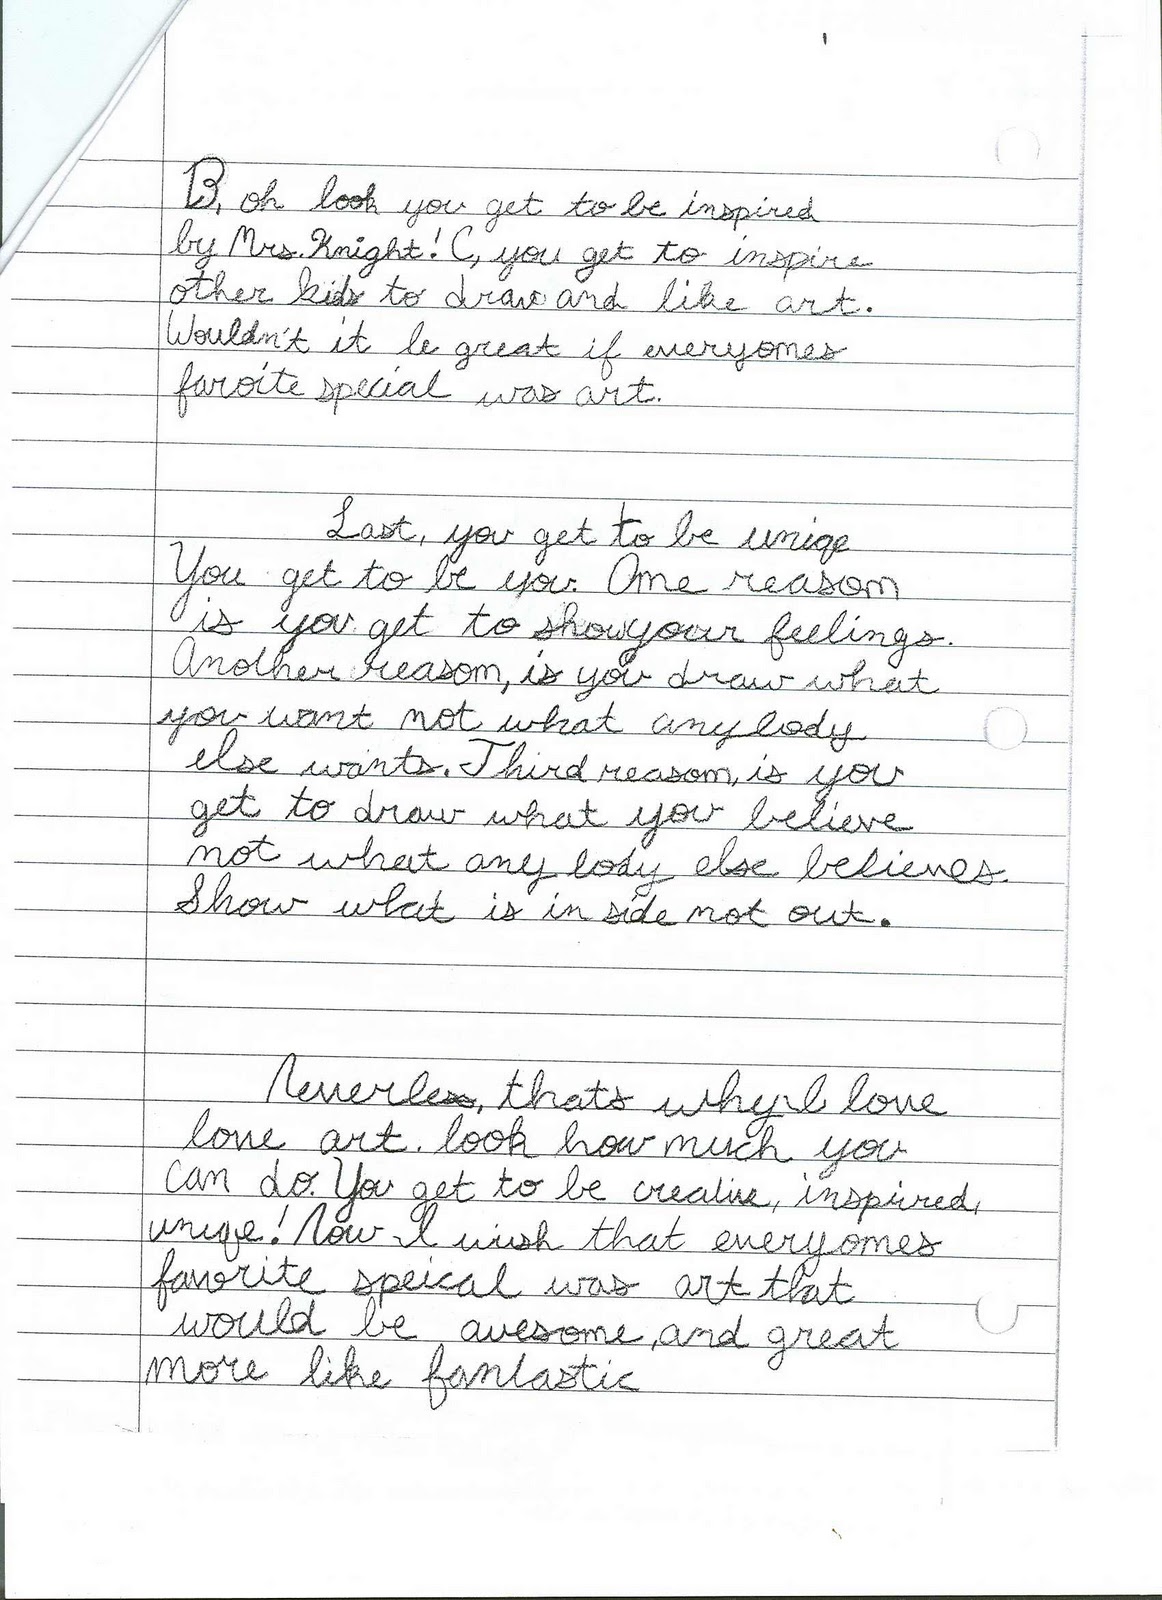 B, oh look you get to be inspired
by Mrs. Knight! C, you get to inspire
other kids to draw and like art.
Wouldn't it be great if everyones
faroite special was art.
Last, you get to be uniqe
You get to be you. One reason
is you get to show your feelings.
Another reason, is you draw what
you want not what any body
else wants. Third reason, is you
get to draw what you believe
not what any body else believes.
Show what is in side not out.
Neverless, thats why I love
love art. look how much you
can do. You get to be creative, inspired,
uniqe! Now I wish that everyones
favorite speical was art that
would be avesome, and great
more like fantastic